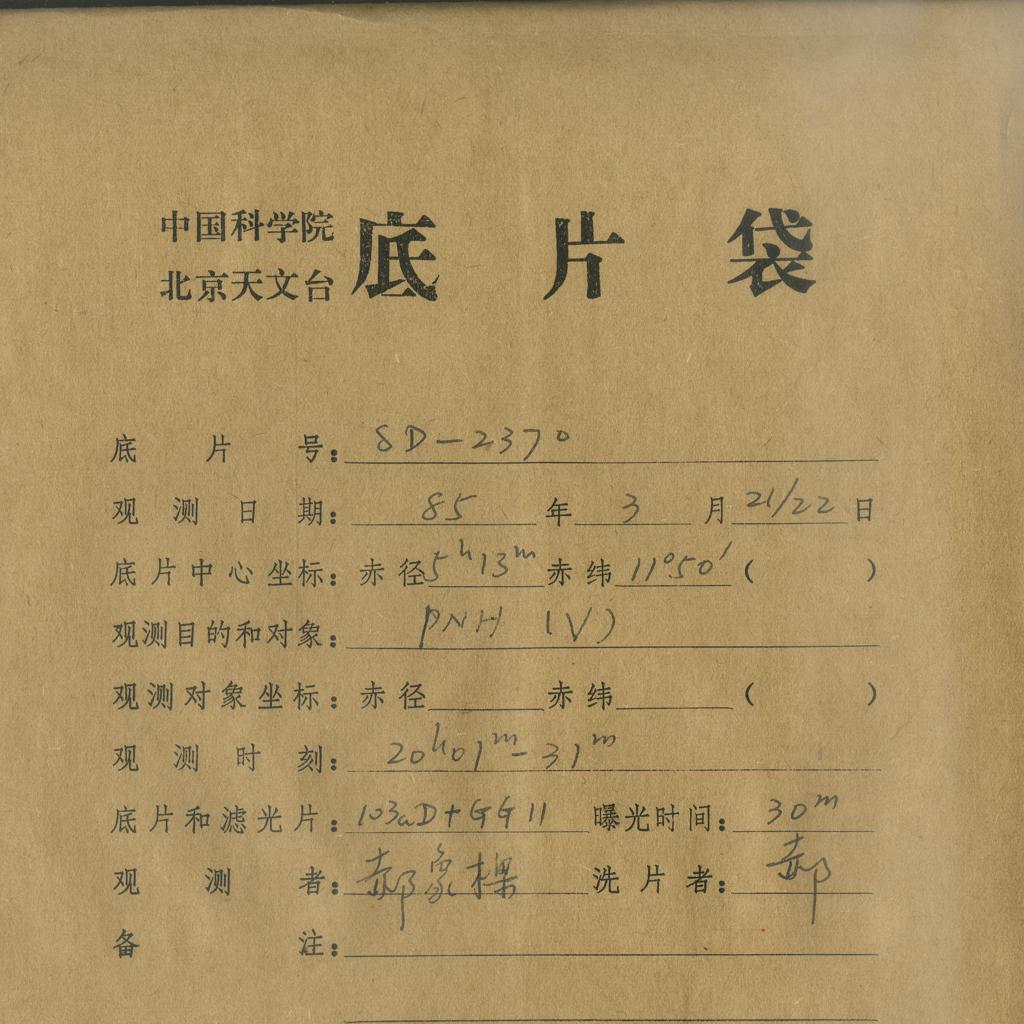 中国科学院
北京天文台
底片袋
底片号：SD-2370
观测日期：85年3月21/22日
底片中心坐标：赤径5h13m赤纬11°50′( )
观测目的和对象：PNH (V)
观测对象坐标：赤径 赤纬 ( )
观测时刻：20h01m-31m
底片和滤光片：103aD+GG11 曝光时间：30m
观测者：郝象樑 洗片者：郝
备注：